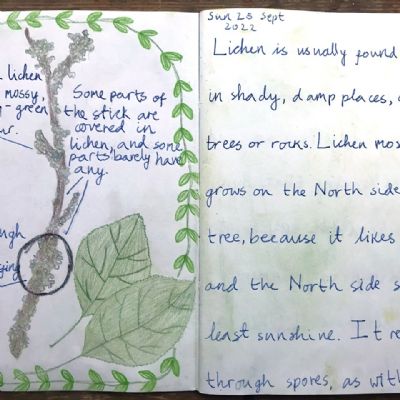 lichen
mossy,
- green
Some parts of
the stick are
covered in
lichen, and some
parts barely have
any.
Sun 25 Sept
2022
Lichen is usually found
in shady, damp places,
trees or rocks. Lichen mos
grows on the North side
tree, because it likes
and the North side s
least sunshine. It re
through spores, as with